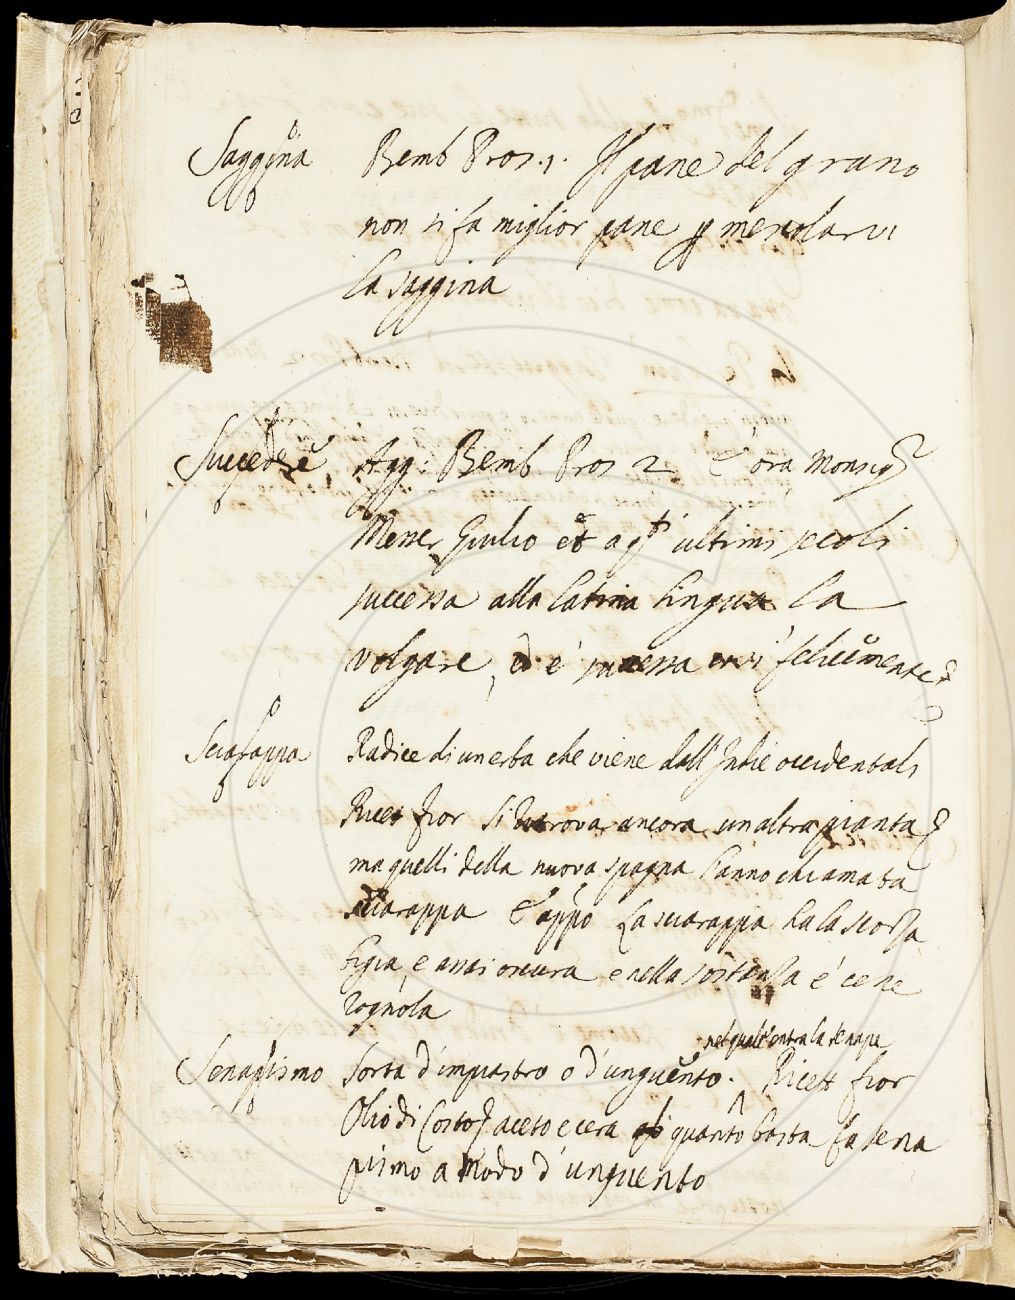 Saggina Bemb Pros. 1. Il pane del grano
non si fa miglior pane p mescolarvi
la saggina
Succedere Agg: Bemb. Pros 2 è ora Monsigr
Messer Giulio et a qti ultimi secoli
successa alla latina lingua la
volgare, et è successa così felicemente
Sciarappa Radice di un erba che viene dall'Indie occidentali
Ricet fior Si trova ancora un altra pianta
ma quelli della nuova spagna hanno chiamata
sciarappa E appo La sciarappa ha la scorza
bigia, e assai oscura e nella sostanza è cene
rognola
nel quale entra la senapa
Senapismo Sorta d'impiastro o d'unguento. Ricett fior
Olio di Costo aceto e cera quanto basta fa sena
pismo a modo d'unguento